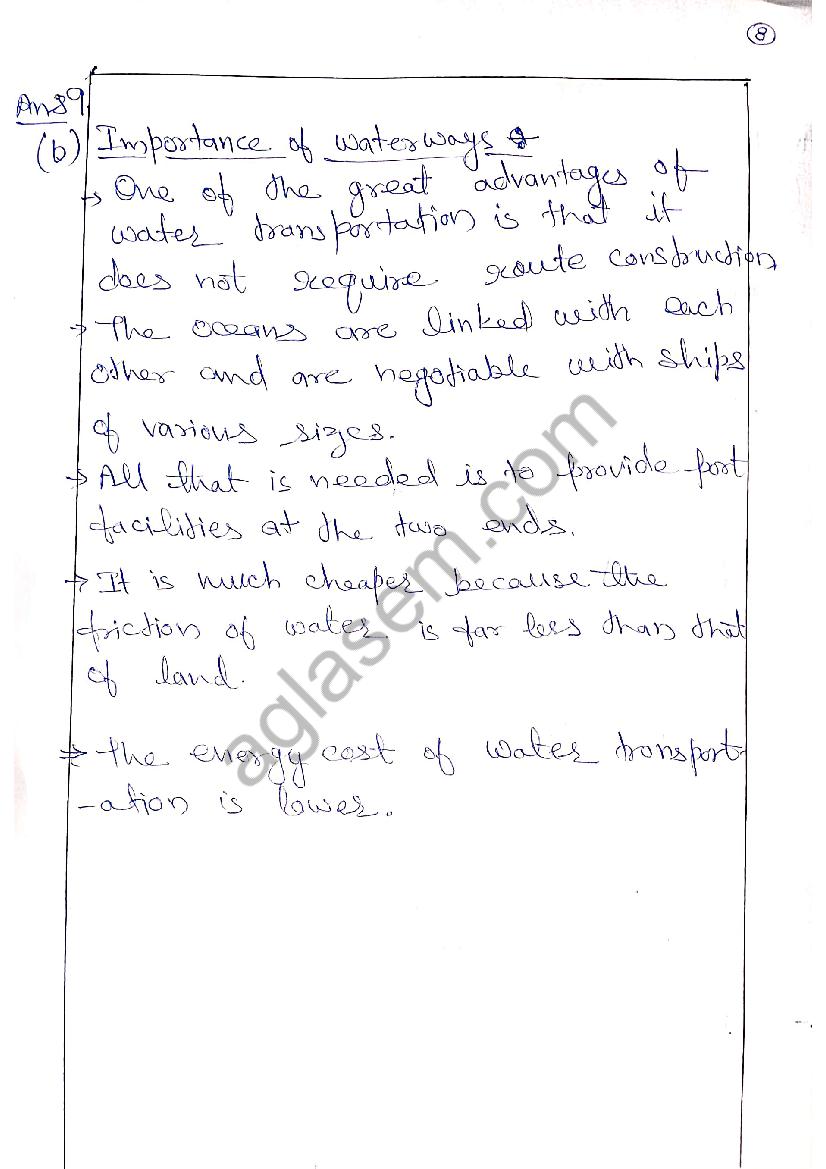 8
Ans9
(b) Importance of waterways :-
→ One of the great advantages of
water transportation is that it
does not require route construction,
→ The oceans are linked with each
other and are negotiable with ships
of various sizes.
→ All that is needed is to provide port
facilities at the two ends.
→ It is much cheaper because the
friction of water is far less than that
of land.
→ The energy cost of water transport
-ation is lower.
aglasem.com